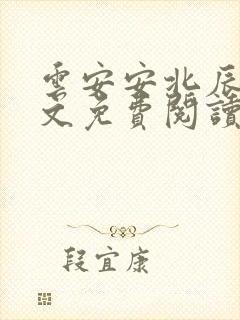 雲安安北辰
文免費閱讀
段宜康